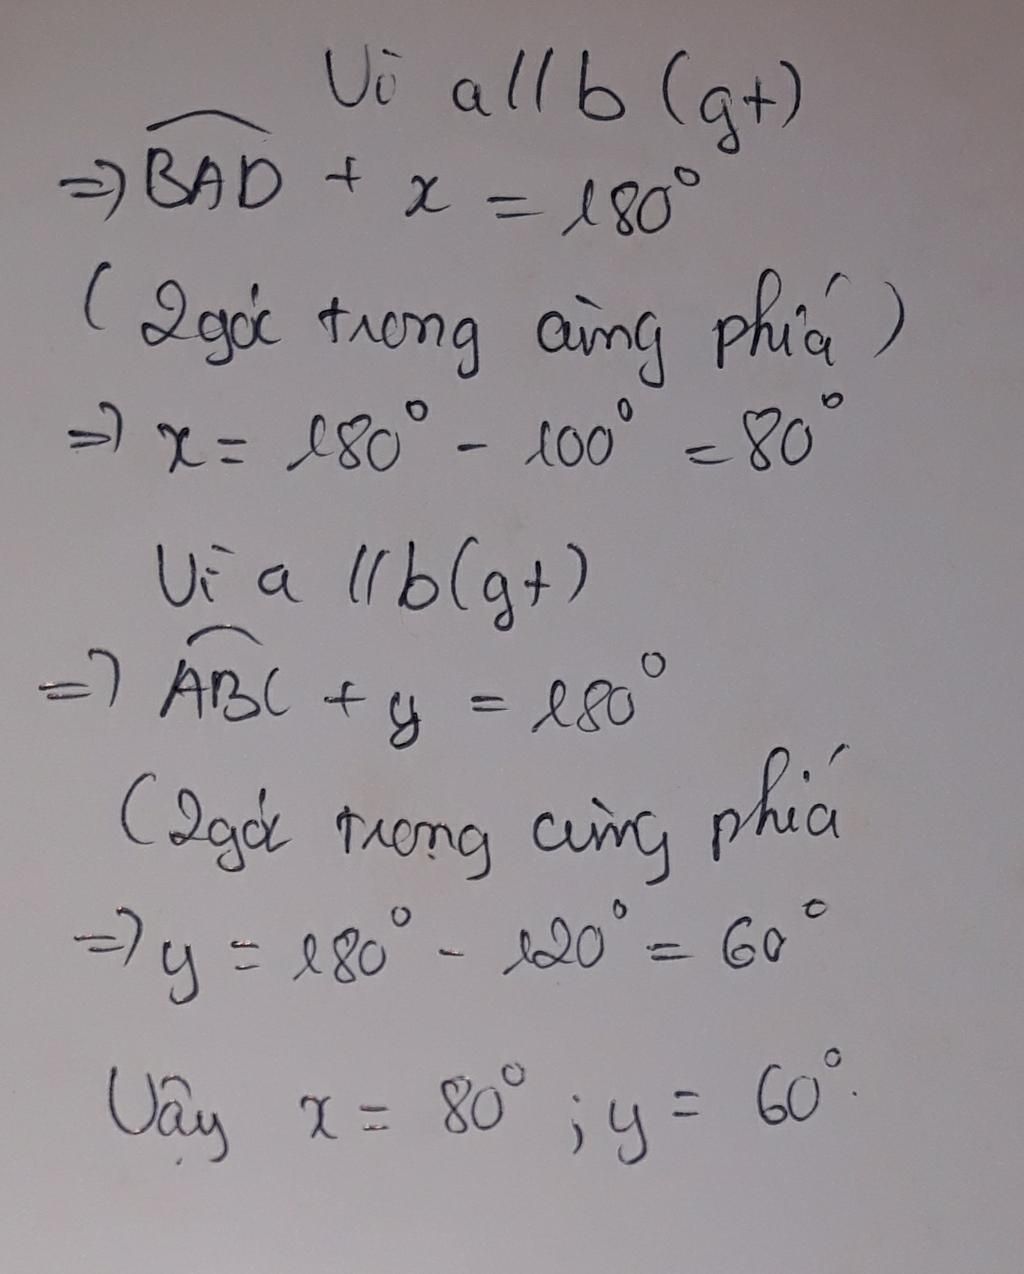 Vì a // b (gt)
=> \widehat{BAD} + x = 180°
( 2 góc trong cùng phía )
=> x = 180° - 100° = 80°
Vì a // b (gt)
=> \widehat{ABC} + y = 180°
( 2 góc trong cùng phía
=> y = 180° - 120° = 60°
Vậy x = 80° ; y = 60°.